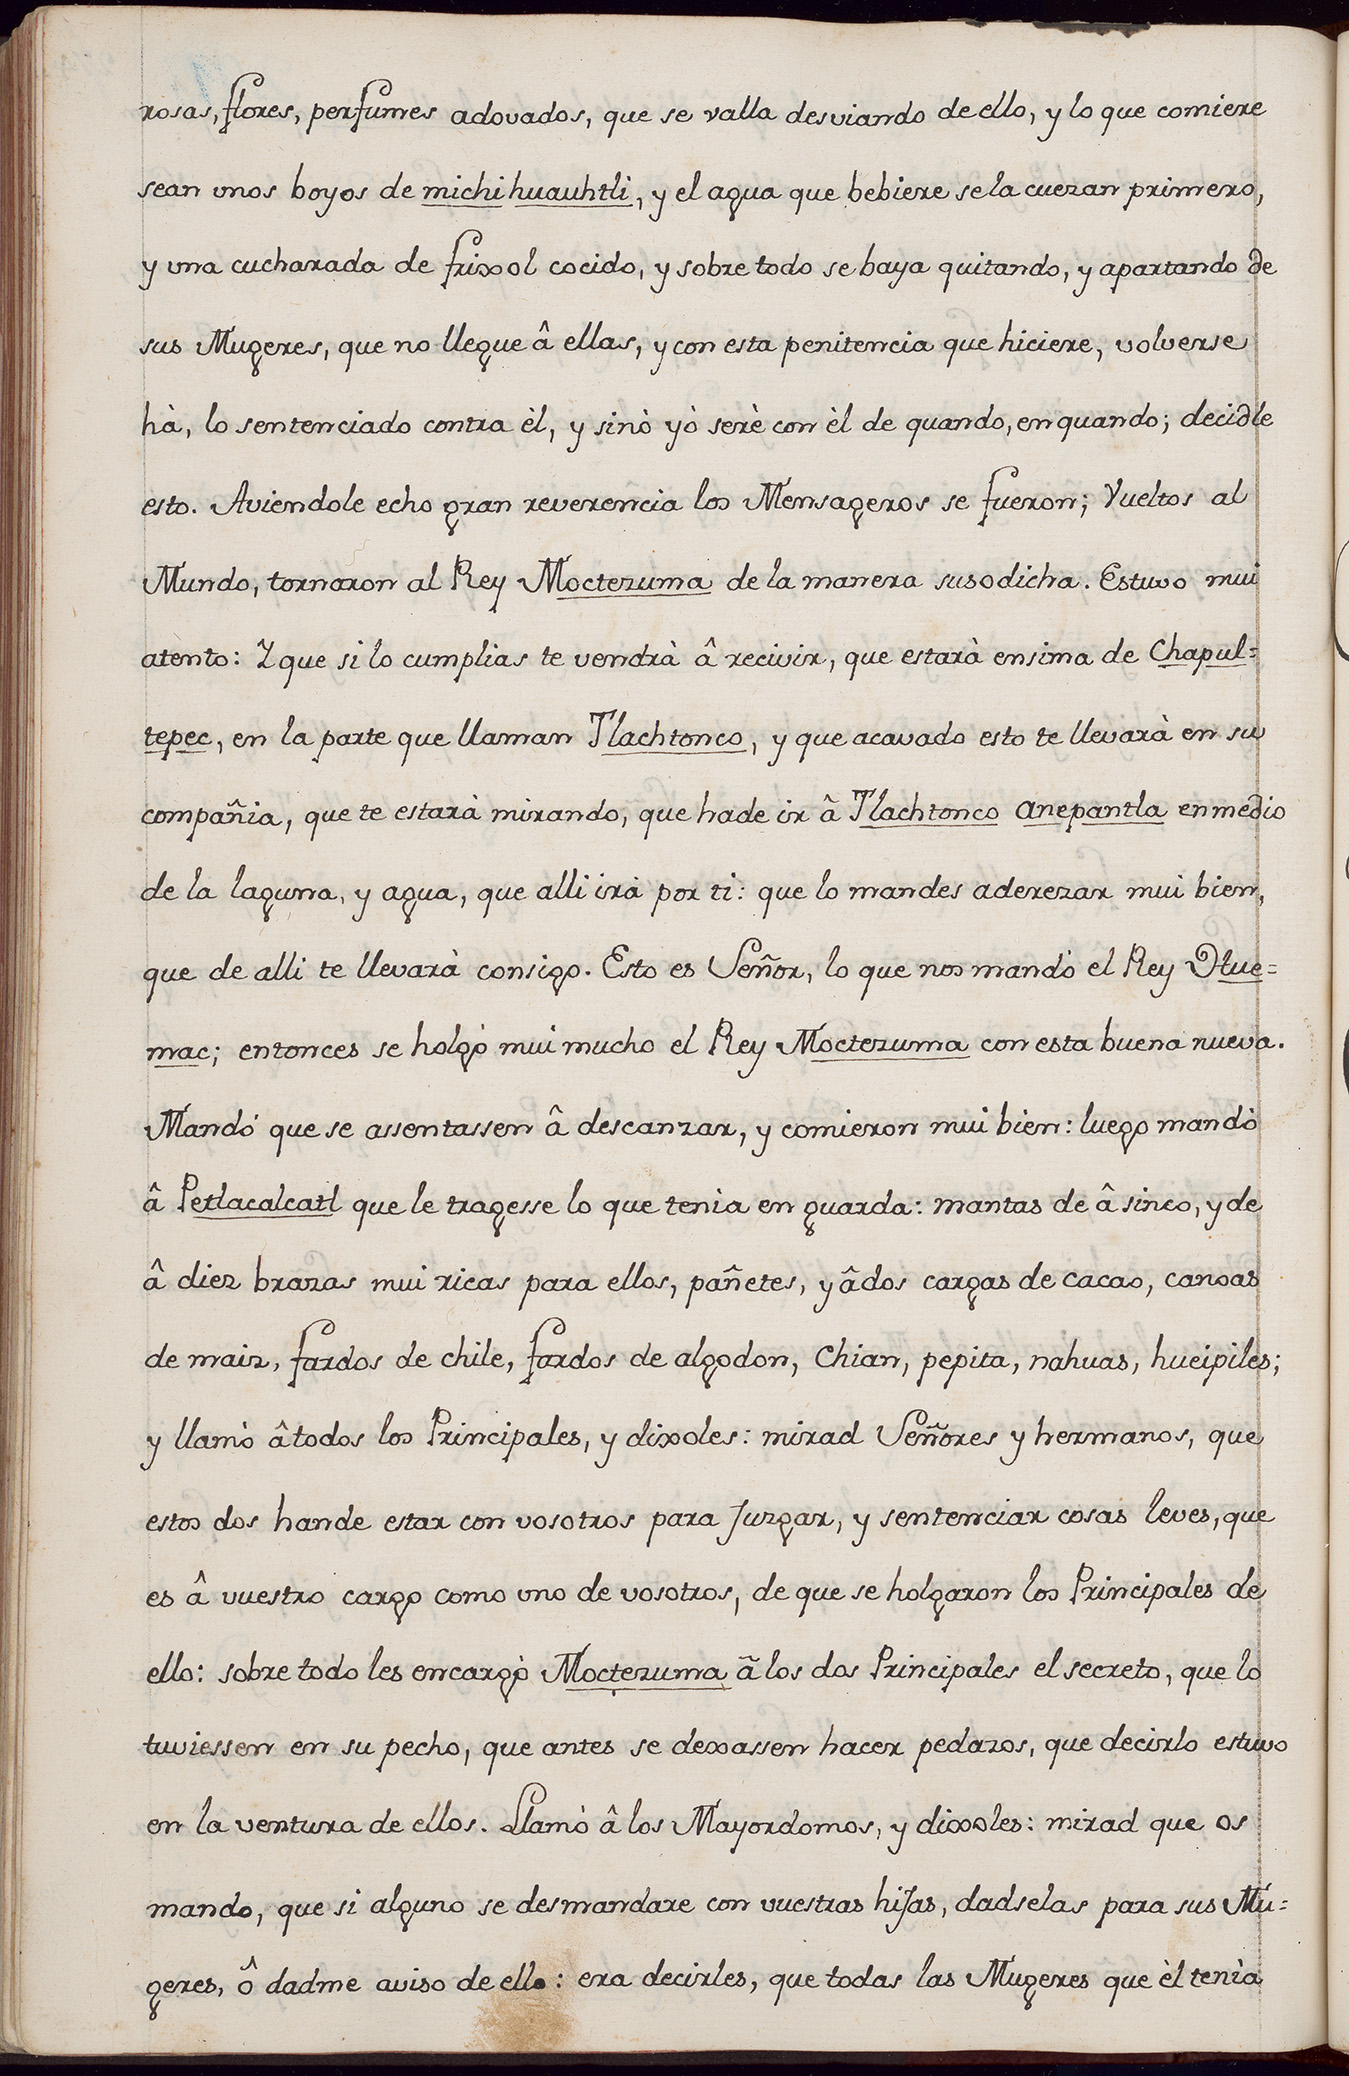 rosas, flores, perfumes adovados, que se valla desviando de ello, y lo que comiere
sean unos boyos de michihuauhtli, y el agua que bebiere se la cuezan primero,
y una cucharada de frixol cocido, y sobre todo se baya quitando, y apartando de
sus Mugeres, que no llegue â ellas, y con esta penitencia que hiciere, volverse
hà, lo sentenciado contra èl, y sinò yò serè con èl de quando, en quando; decidle
esto. Aviendole echo gran reverencia los Mensageros se fueron; Vueltos al
Mundo, tornaron al Rey Moctezuma de la manera susodicha. Estuvo mui
atento: Y que si lo cumplias te vendrà â recivir, que estarà ensima de Chapul=
tepec, en la parte que llaman Tlachtonco, y que acavado esto te llevarà en su
compañia, que te estarà mirando, que hade ir â Tlachtonco anepantla en medio
de la laguna, y agua, que alli irà por ti: que lo mandes aderezar mui bien,
que de alli te llevarà consigo. Esto es Señor, lo que nos mandò el Rey Hue=
mac; entonces se holgò mui mucho el Rey Moctezuma con esta buena nueva.
Mandó que se assentassen â descanzar, y comieron mui bien: luego mandò
â Petlacalcatl que le tragesse lo que tenia en guarda: mantas de â sinco, y de
â diez brazas mui ricas para ellos, pañetes, y â dos cargas de cacao, canoas
de maiz, fardos de chile, fardos de algodon, Chian, pepita, nahuas, hueipiles;
y llamò â todos los Principales, y dixoles: mirad Señores y hermanos, que
estos dos hande estar con vosotros para Juzgar, y sentenciar cosas leves, que
es â vuestro cargo como uno de vosotros, de que se holgaron los Principales de
ello: sobre todo les encargò Moctezuma â los dos Principales el secreto, que lo
tuviessen en su pecho, que antes se dexassen hacer pedazos, que decirlo estuvo
en la ventura de ellos. Llamò â los Mayordomos, y dixoles: mirad que os
mando, que si alguno se desmandare con vuestras hiJas, dadselas para sus Mu=
geres, ô dadme aviso de ello: era decirles, que todas las Mugeres que èl tenìa